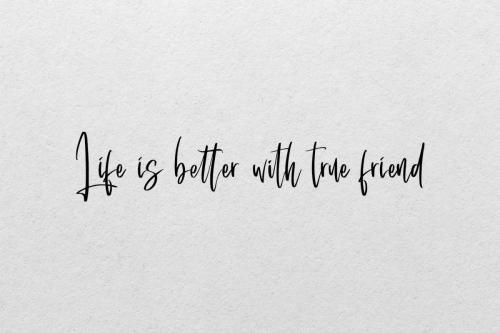 Life is better with true friend